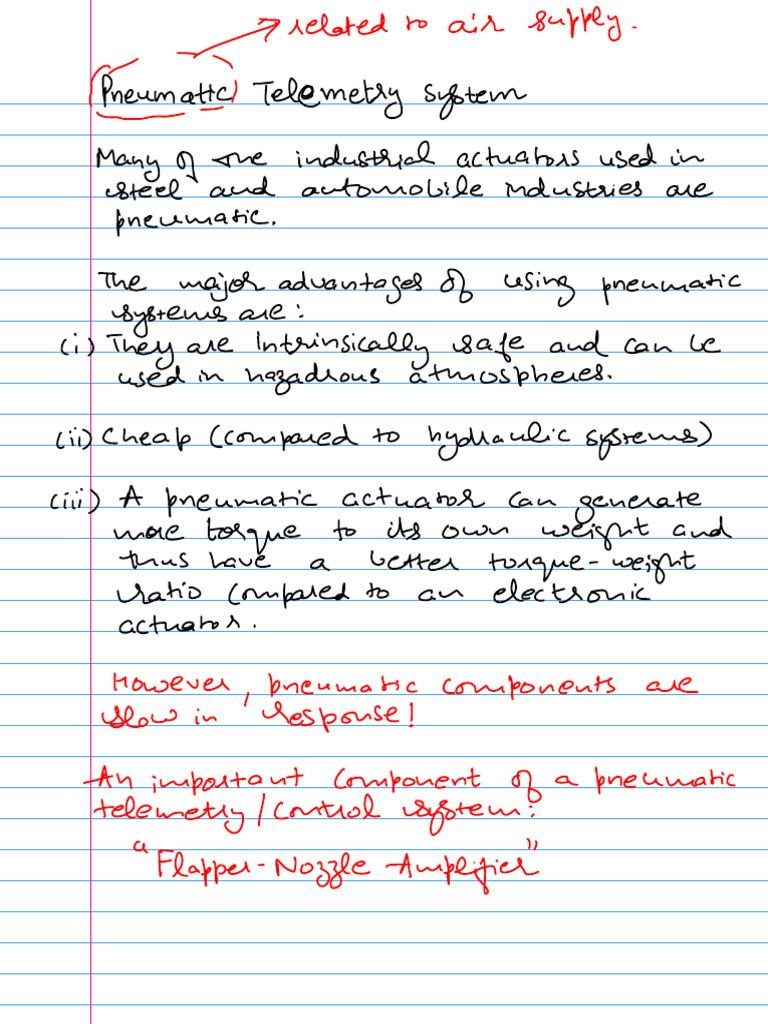 related to air supply.
Pneumatic Telemetry system
Many of the industrial actuators used in
steel and automobile industries are
pneumatic.
The major advantages of using pneumatic
systems are:
(i) They are Intrinsically safe and can be
used in hazadrous atmospheres.
(ii) Cheap (compared to hydraulic systems)
(iii) A pneumatic actuator can generate
more torque to its own weight and
thus have a better torque-weight
ratio compared to an electronic
actuator.
However, pneumatic components are
slow in response!
An important component of a pneumatic
telemetry/control system:
"Flapper-Nozzle Amplifier"